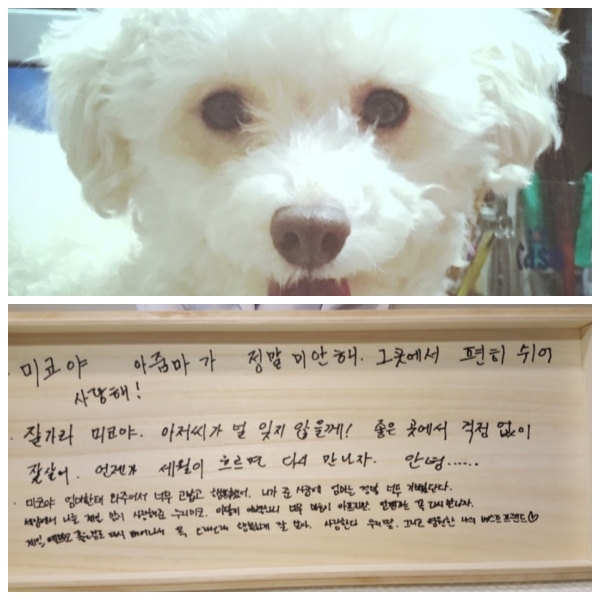 미쿄야 아줌마가 정말 미안해. 그곳에서 편히 쉬어
사랑해!
잘가라 미쿄야. 아저씨가 널 잊지 않을께! 좋은 곳에서 걱정 없이
잘살어. 언젠가 세월이 흐르면 다시 만나자. 안녕......
미쿄야 엄마한테 와주어서 너무 고맙고 행복했어. 니가 준 사랑에 엄마는 정말 너무
세상에서 나를 제일 많이 사랑해준 우리미쿄. 이렇게 너무 많이 아프지만 꼭 다시 만나자.
제일 다시 태어나서 꼭, 행복하게 잘 살아. 사랑한다 우리딸. 그리고 영원한 나의 베스트프렌드♡